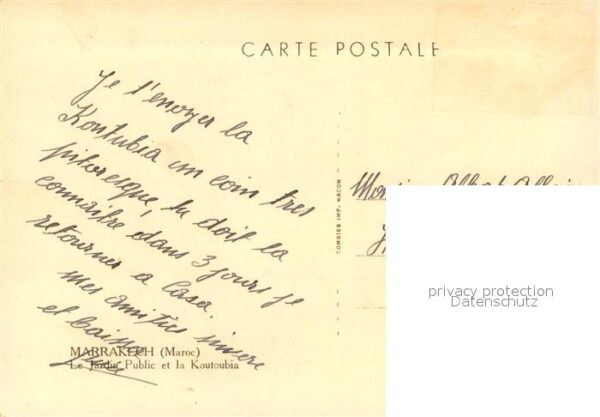 CARTE POSTALE
Je t'envoyer la
Kontubia un coin tres
pitoresque, tu doit la
connaitre dans 3 jours je
retourner a Casa.
mes amitiés sincere
et baises
MARRAKECH (Maroc)
Le Jardin Public et la Koutoubia
COMBIER IMP. MACON
Monsieur Albert
privacy protection
Datenschutz